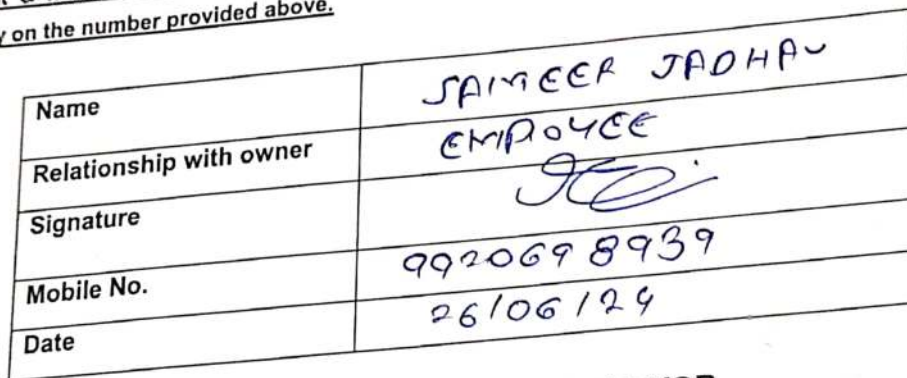 y on the number provided above.
Name SAMEER JADHAV
Relationship with owner EMPOYEE
Signature
Mobile No. 9920698939
Date 26/06/24